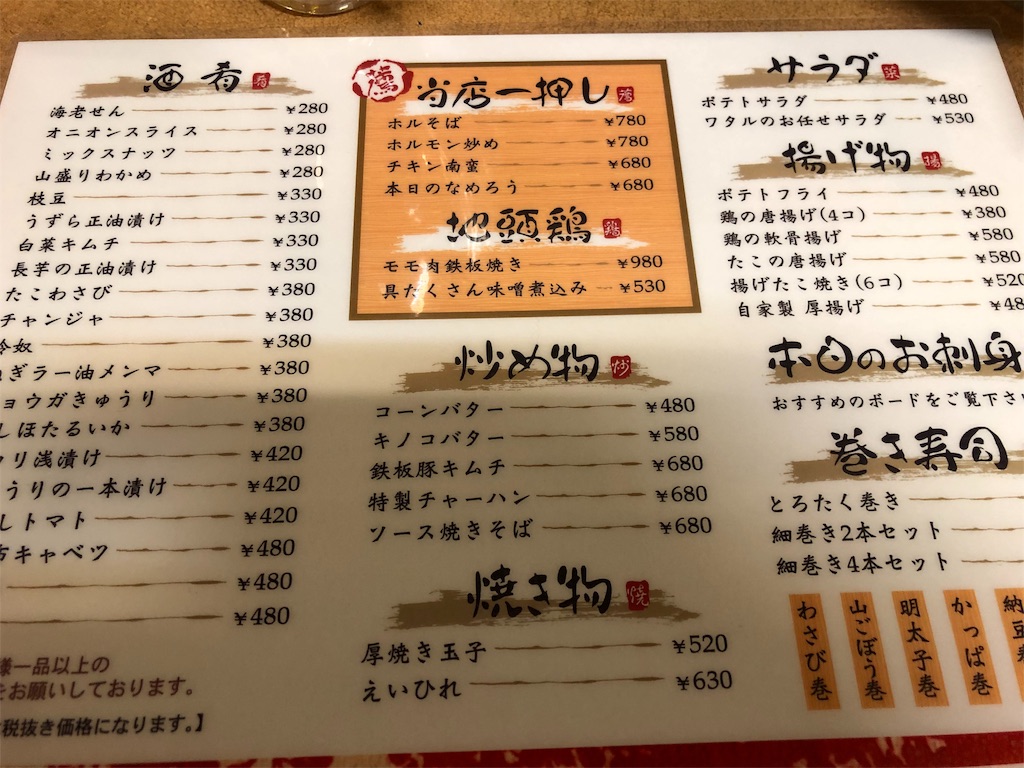 酒肴 肴
海老せん ¥280
オニオンスライス ¥280
ミックスナッツ ¥280
山盛りわかめ ¥280
枝豆 ¥330
うずら正油漬け ¥330
白菜キムチ ¥330
長芋の正油漬け ¥330
たこわさび ¥380
チャンジャ ¥380
冷奴 ¥380
ねぎラー油メンマ ¥380
ョウガきゅうり ¥380
しほたるいか ¥380
ウリ浅漬け ¥420
うりの一本漬け ¥420
しトマト ¥420
キャベツ ¥480
¥480
¥480
様一品以上の
をお願いしております。
税抜き価格になります。】
当店一押し
ホルそば ¥780
ホルモン炒め ¥780
チキン南蛮 ¥680
本日のなめろう ¥680
地頭鶏 鶏
モモ肉鉄板焼き ¥980
具だくさん味噌煮込み ¥530
炒め物 炒
コーンバター ¥480
キノコバター ¥580
鉄板豚キムチ ¥680
特製チャーハン ¥680
ソース焼きそば ¥680
焼き物 焼
厚焼き玉子 ¥520
えいひれ ¥630
サラダ 菜
ポテトサラダ ¥480
ワタルのお任せサラダ ¥530
揚げ物 揚
ポテトフライ ¥480
鶏の唐揚げ(4コ) ¥380
鶏の軟骨揚げ ¥580
たこの唐揚げ ¥580
揚げたこ焼き(6コ) ¥520
自家製 厚揚げ ¥48
本日のお刺身
おすすめのボードをご覧下さい
巻き寿司
とろたく巻き
細巻き2本セット
細巻き4本セット
わさび巻
山ごぼう巻
明太子巻
かっぱ巻
納豆巻